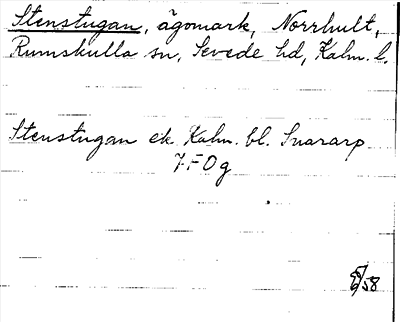 Stenstugan, ägomark, Norrhult,
Rumskulla sn, Sevede hd, Kalm. l.
Stenstugan ek. Kalm. bl. Snararp
7 F 0 g
58